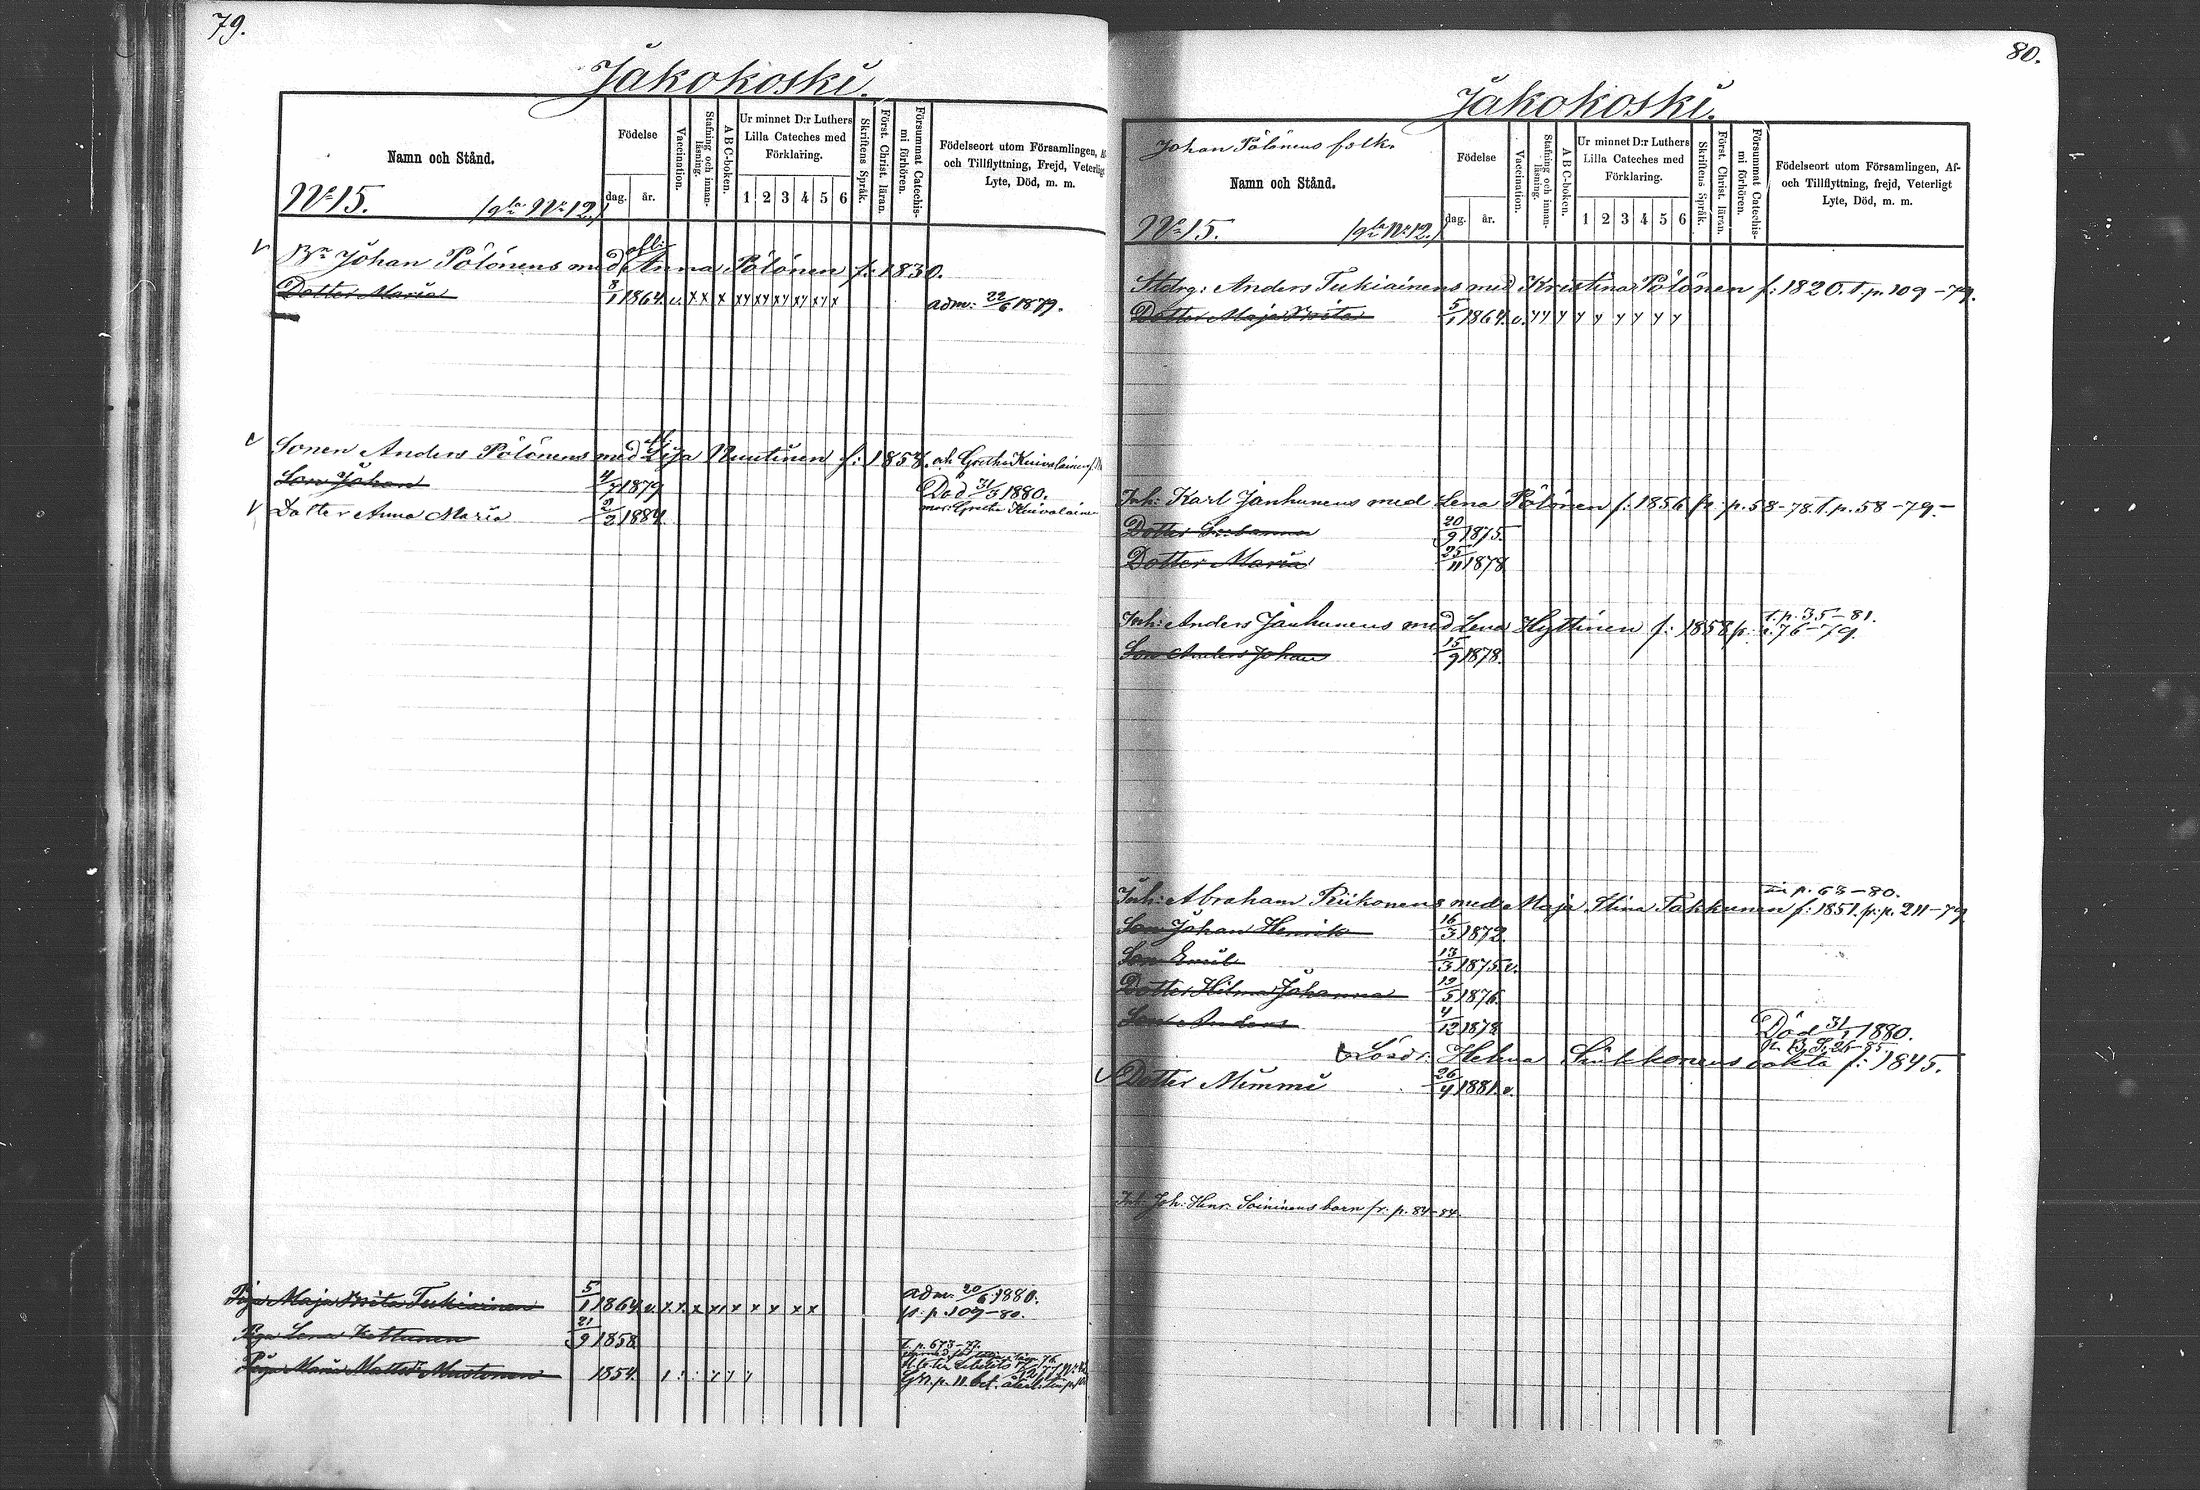 79.
Jakokoski.
Namn och Stånd.
Födelse
dag.
år.
Vaccination.
Stafning och innan-läsning.
A B C-boken.
Ur minnet D:r Luthers
Lilla Cateches med
Förklaring.
1 2 3 4 5 6
Skriftens Språk.
Först. Christ. läran.
Försummat Catechis-mi förhören.
Födelseort utom Församlingen, A
och Tillflyttning, Frejd, Veterligt
Lyte, Död, m. m.
No 15. /gla No 12./
Bn Johan Pölönens med Anna Pölönen f: 1830.
Dotter Maria 8/1 1864 v. x x x xy xy xy xy xy x adm: 22/6 1879.
Sonen Anders Pölönens med Lisa Nuutinen f: 1857. och Greta Kuivalainen
Son Johan 4/7 1879 Död 31/3 1880.
Dotter Anna Maria 2/2 1884. mor: Greta Kuivalaine
Piga Maja Brita Tukiainen 5/1 1864 v. x x x x x x x x x adm: 20/6 1880.
fr: p. 109-80.
Piga Lena Kettunen 21/9 1858
t. p. 673-77.
Piga Maria Mattsdr Mustonen 1854.
80.
Jakokoski.
Johan Pölönens folk.
Namn och Stånd.
Födelse
dag.
år.
Vaccination.
Stafning och innan-läsning.
A B C-boken.
Ur minnet D:r Luthers
Lilla Cateches med
Förklaring.
1 2 3 4 5 6
Skriftens Språk.
Först. Christ. läran.
Försummat Catechis-mi förhören.
Födelseort utom Församlingen, Af-
och Tillflyttning, frejd, Veterligt
Lyte, Död, m. m.
No 15. /gla No 12./
Stdrg: Anders Tukiainens med Kristina Pölönen f: 1820. t. p. 109-79.
Dotter Maja Brita 5/1 1864. v. y y y y y y y y y
Inh: Karl Janhunens med Lena Pölönen f: 1856 fr: p. 58-78. t. p. 58-79.-
Dotter Susanna 20/9 1875.
Dotter Maria 25/11 1878
t. p. 35-81.
Inh: Anders Janhunens med Lena Hyttinen f: 1858 fr: p. 76-79.
Son Anders Johan 15/9 1878.
in p. 63-80.
Inh: Abraham Riikonens med Maja Stina Takkunen f: 1851. fr: p. 211-79
Son Johan Henrik 16/3 1872.
Son Emil 13/3 1875 v.
Dotter Hilma Johanna 19/5 1876.
Son Anders 4/12 1878 Död 31/1 1880.
Lösdr: Helena Sinkkonens oäkta f: 1845.
Dotter Mimmi 26/4 1881. v.
Inh: Joh: Henr: Soininens barn fr: p. 84-84.